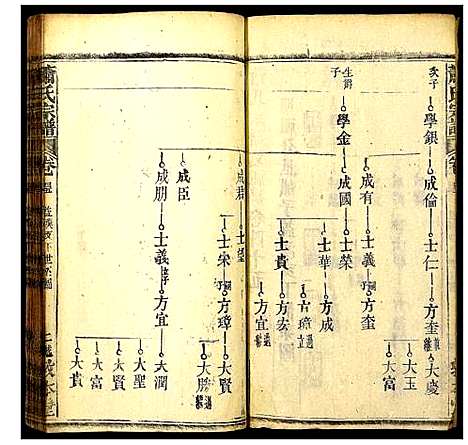 蕭氏宗譜
卷
次子
學銀
成倫
士仁
方奎
大慶
大玉
成有
士義
方奎
生爵
子
學金
成國
士榮
士華
方成
士貴
方宏
方宜
成君
士宋
方璋
大賢
大勝
成臣
成朋
士義
方宜
大潤
大聖
大賢
大富
大貴
蕭氏宗譜
卷